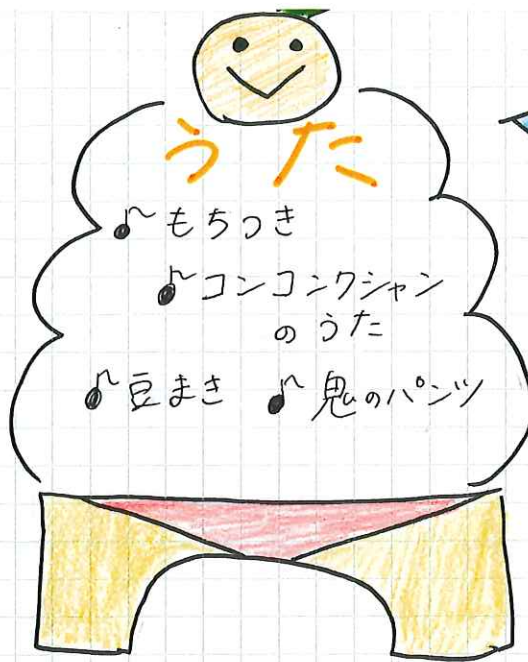 うた
♪もちつき
♪コンコンクシャン
のうた
♪豆まき ♪鬼のパンツ